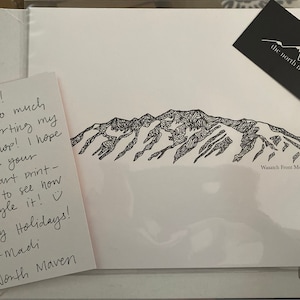 !
o much
orting my
hop! I hope
your
art print-
to see how
yle it! ♡
y Holidays!
-Madi
North Maven
Wasatch Front M
the north m